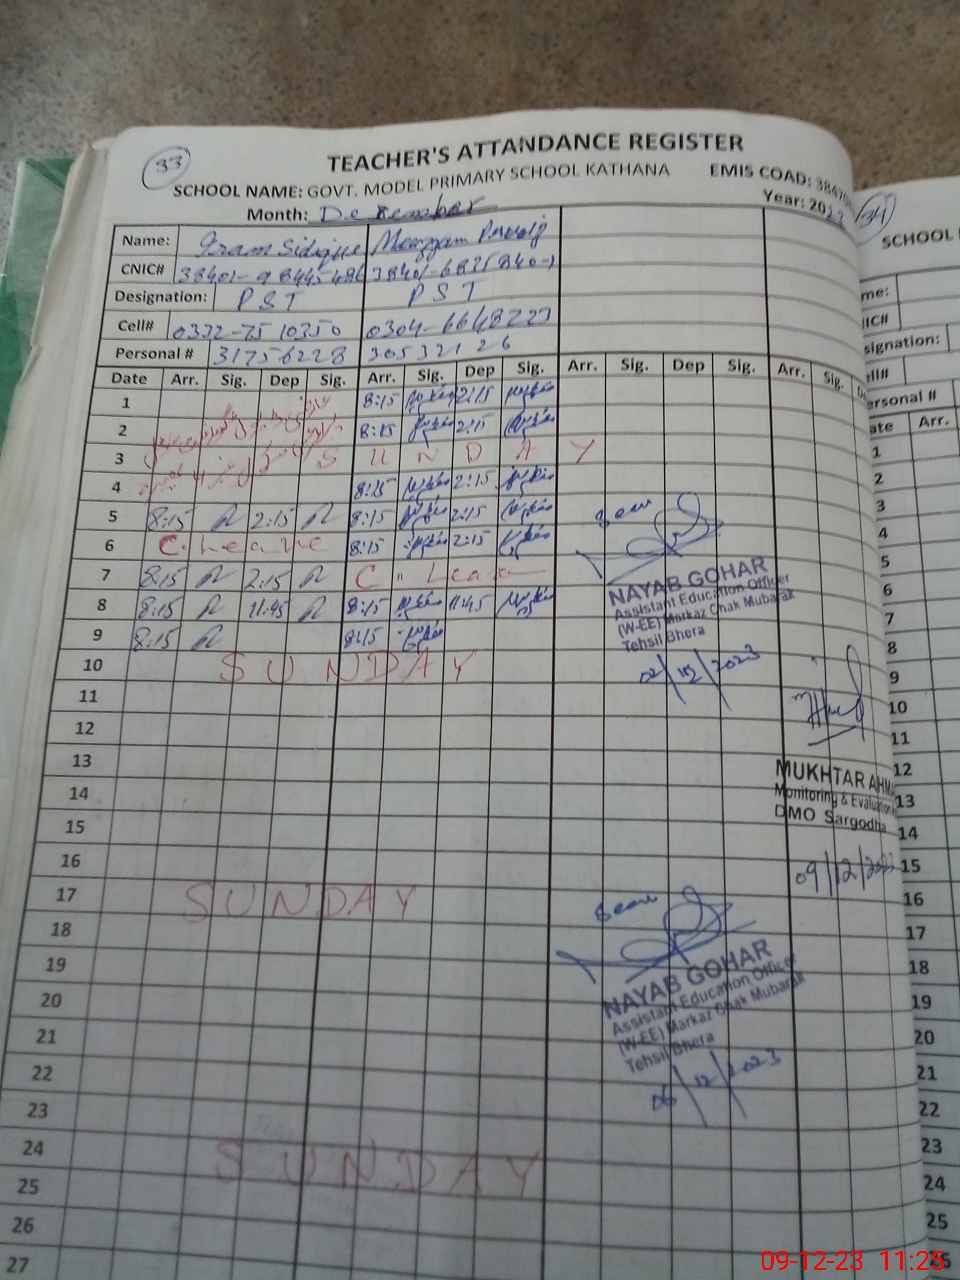 33
TEACHER'S ATTANDANCE REGISTER
SCHOOL NAME: GOVT. MODEL PRIMARY SCHOOL KATHANA EMIS COAD: 3847
Month: December Year: 202
Name: Iram Sidique
CNIC#
Designation: PST PST
Cell# 0332-75 10350 0304-6648223
Personal # 31756228 30532126
Date Arr. Sig. Dep Sig. Arr. Sig. Dep Sig. Arr. Sig. Dep Sig. Arr. Sig.
1 8:15 2:15
2 8:15 2:15
3 SUNDAY
4 8:15 2:15
5 8:15 2:15 8:15 2:15
6 C. Leave 8:15 2:15
7 8:15 2:15 C. Leave
8 8:15 11:45 8:15 11:45
9 8:15 8:15
10 SUNDAY
11
12
13
14
15
16
17 SUNDAY
18
19
20
21
22
23
24 SUNDAY
25
26
27
Seen
NAYAB GOHAR
Assistant Education Officer
(W-EE) Markaz Chak Mubarak
Tehsil Bhera
02/12/2023
MUKHTAR AHMA
Monitoring & Evaluation
DMO Sargodha
09/12/2023
Seen
NAYAB GOHAR
Assistant Education Officer
(W-EE) Markaz Chak Mubarak
Tehsil Bhera
06/12/2023
34
SCHOOL
me:
IC#
signation:
ell#
ersonal #
ate Arr.
1
2
3
4
5
6
7
8
9
10
11
12
13
14
15
16
17
18
19
20
21
22
23
24
25
26
09-12-23 11:25